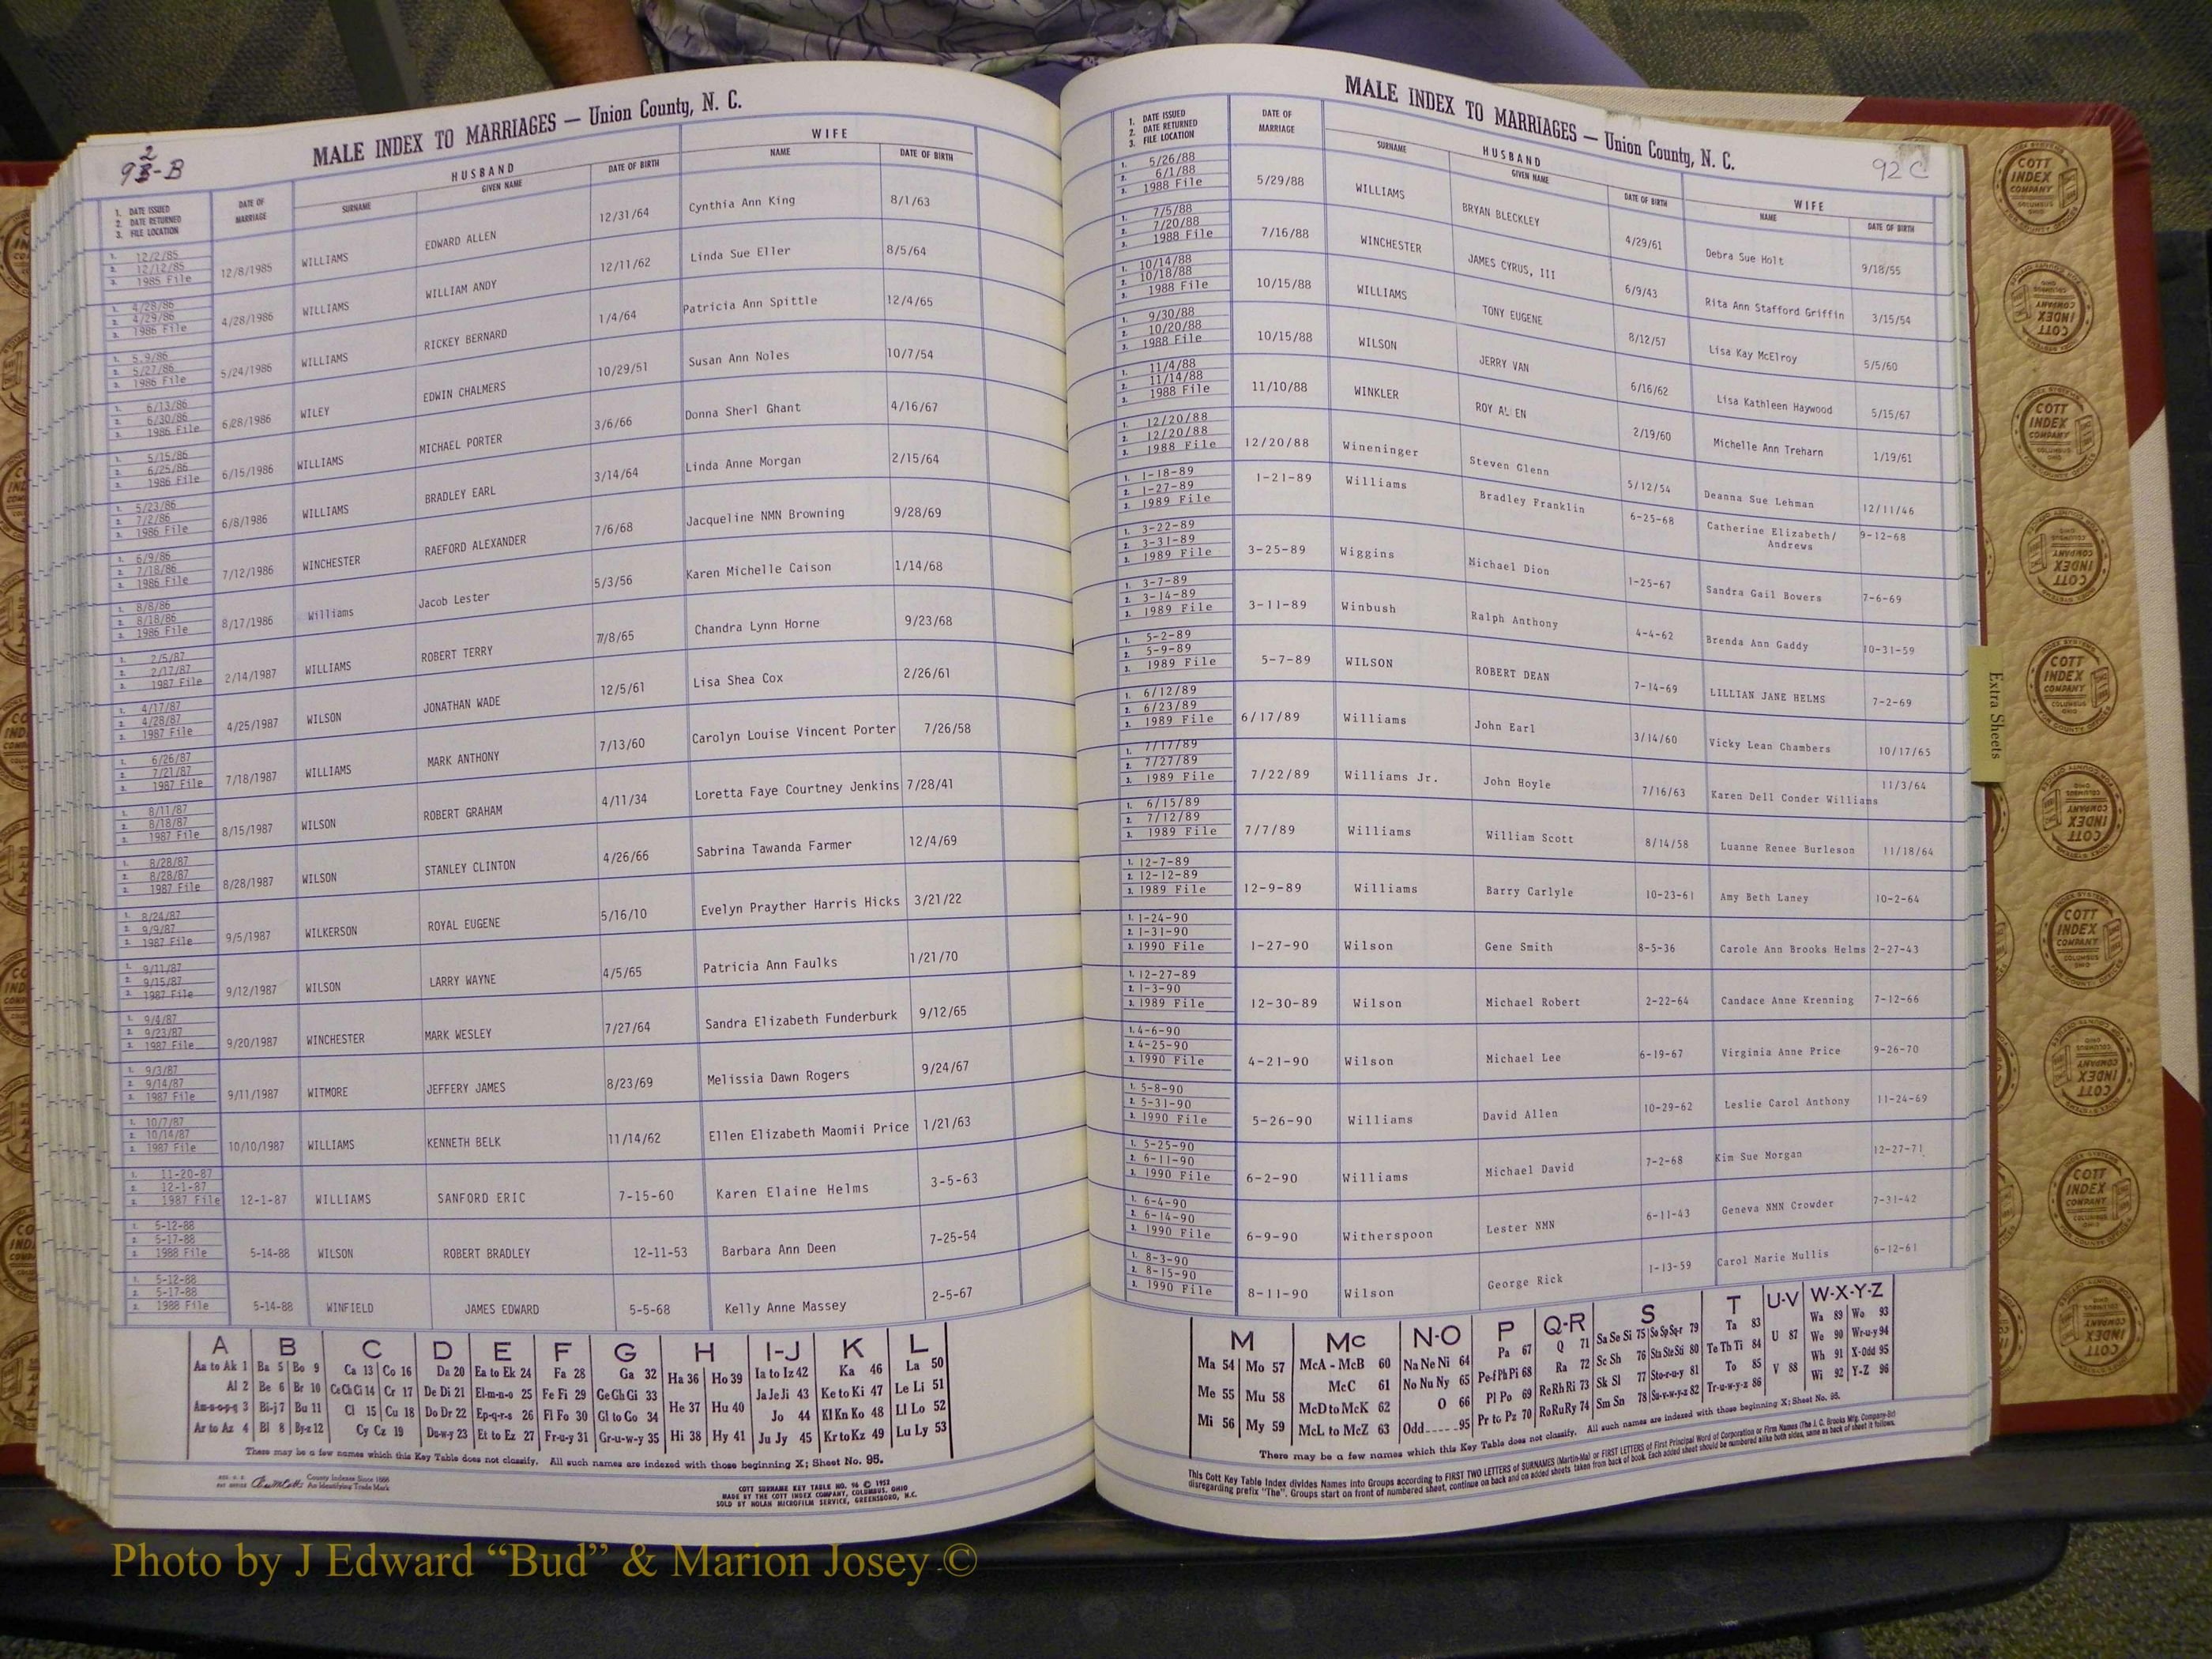 92-B
MALE INDEX TO MARRIAGES — Union County, N. C.
1. DATE ISSUED 2. DATE RETURNED 3. FILE LOCATION
DATE OF MARRIAGE
HUSBAND
SURNAME GIVEN NAME DATE OF BIRTH
WIFE
NAME DATE OF BIRTH
1. 12/2/85 2. 12/12/85 3. 1985 File 12/8/1985 WILLIAMS EDWARD ALLEN 12/31/64 Cynthia Ann King 8/1/63
1. 4/28/86 2. 4/29/86 3. 1986 File 4/28/1986 WILLIAMS WILLIAM ANDY 12/11/62 Linda Sue Eller 8/5/64
1. 5.9/86 2. 5/27/86 3. 1986 File 5/24/1986 WILLIAMS RICKEY BERNARD 1/4/64 Patricia Ann Spittle 12/4/65
1. 6/13/86 2. 6/30/86 3. 1986 File 6/28/1986 WILEY EDWIN CHALMERS 10/29/51 Susan Ann Noles 10/7/54
1. 5/15/86 2. 6/25/86 3. 1986 File 6/15/1986 WILLIAMS MICHAEL PORTER 3/6/66 Donna Sherl Ghant 4/16/67
1. 5/23/86 2. 7/2/86 3. 1986 File 6/8/1986 WILLIAMS BRADLEY EARL 3/14/64 Linda Anne Morgan 2/15/64
1. 6/9/86 2. 7/18/86 3. 1986 File 7/12/1986 WINCHESTER RAEFORD ALEXANDER 7/6/68 Jacqueline NMN Browning 9/28/69
1. 8/8/86 2. 8/18/86 3. 1986 File 8/17/1986 Williams Jacob Lester 5/3/56 Karen Michelle Caison 1/14/68
1. 2/5/87 2. 2/17/87 3. 1987 File 2/14/1987 WILLIAMS ROBERT TERRY 7/8/65 Chandra Lynn Horne 9/23/68
1. 4/17/87 2. 4/28/87 3. 1987 File 4/25/1987 WILSON JONATHAN WADE 12/5/61 Lisa Shea Cox 2/26/61
1. 6/26/87 2. 7/21/87 3. 1987 File 7/18/1987 WILLIAMS MARK ANTHONY 7/13/60 Carolyn Louise Vincent Porter 7/26/58
1. 8/11/87 2. 8/18/87 3. 1987 File 8/15/1987 WILSON ROBERT GRAHAM 4/11/34 Loretta Faye Courtney Jenkins 7/28/41
1. 8/28/87 2. 8/28/87 3. 1987 File 8/28/1987 WILSON STANLEY CLINTON 4/26/66 Sabrina Tawanda Farmer 12/4/69
1. 8/24/87 2. 9/9/87 3. 1987 File 9/5/1987 WILKERSON ROYAL EUGENE 5/16/10 Evelyn Prayther Harris Hicks 3/21/22
1. 9/11/87 2. 9/15/87 3. 1987 File 9/12/1987 WILSON LARRY WAYNE 4/5/65 Patricia Ann Faulks 1/21/70
1. 9/4/87 2. 9/23/87 3. 1987 File 9/20/1987 WINCHESTER MARK WESLEY 7/27/64 Sandra Elizabeth Funderburk 9/12/65
1. 9/3/87 2. 9/14/87 3. 1987 File 9/11/1987 WITMORE JEFFERY JAMES 8/23/69 Melissia Dawn Rogers 9/24/67
1. 10/7/87 2. 10/14/87 3. 1987 File 10/10/1987 WILLIAMS KENNETH BELK 11/14/62 Ellen Elizabeth Maomii Price 1/21/63
1. 11-20-87 2. 12-1-87 3. 1987 File 12-1-87 WILLIAMS SANFORD ERIC 7-15-60 Karen Elaine Helms 3-5-63
1. 5-12-88 2. 5-17-88 3. 1988 File 5-14-88 WILSON ROBERT BRADLEY 12-11-53 Barbara Ann Deen 7-25-54
1. 5-12-88 2. 5-17-88 3. 1988 File 5-14-88 WINFIELD JAMES EDWARD 5-5-68 Kelly Anne Massey 2-5-67
A B C D E F G H I-J K L
Aa to Ak 1 Ba 5 Bo 9 Ca 13 Co 16 Da 20 Ea to Ek 24 Fa 28 Ga 32 Ha 36 Ho 39 Ia to Iz 42 Ka 46 La 50
Al 2 Be 6 Br 10 Ce Ch Ci 14 Cr 17 De Di 21 El-m-n-o 25 Fe Fi 29 Ge Gh Gi 33 He 37 Hu 40 Ja Je Ji 43 Ke to Ki 47 Le Li 51
Am-n-o-p-q 3 Bi-j 7 Bu 11 Cl 15 Cu 18 Do Dr 22 Ep-q-r-s 26 Fl Fo 30 Gl to Go 34 Jo 44 Kl Kn Ko 48 Ll Lo 52
Ar to Az 4 Bl 8 By-z 12 Cy Cz 19 Du-w-y 23 Et to Ez 27 Fr-u-y 31 Gr-u-w-y 35 Hi 38 Hy 41 Ju Jy 45 Kr to Kz 49 Lu Ly 53
There may be a few names which this Key Table does not classify. All such names are indexed with those beginning X; Sheet No. 95.
County Indexes Since 1888
An Identifying Trade Mark
COTT SURNAME KEY TABLE NO. 96 © 1952
MADE BY THE COTT INDEX COMPANY, COLUMBUS, OHIO
SOLD BY NOLAN MICROFILM SERVICE, GREENSBORO, N.C.
92 C
MALE INDEX TO MARRIAGES — Union County, N. C.
1. DATE ISSUED 2. DATE RETURNED 3. FILE LOCATION
DATE OF MARRIAGE
HUSBAND
SURNAME GIVEN NAME DATE OF BIRTH
WIFE
NAME DATE OF BIRTH
1. 5/26/88 2. 6/1/88 3. 1988 File 5/29/88 WILLIAMS BRYAN BLECKLEY 4/29/61 Debra Sue Holt 9/18/55
1. 7/5/88 2. 7/20/88 3. 1988 File 7/16/88 WINCHESTER JAMES CYRUS, III 6/9/43 Rita Ann Stafford Griffin 3/15/54
1. 10/14/88 2. 10/18/88 3. 1988 File 10/15/88 WILLIAMS TONY EUGENE 8/12/57 Lisa Kay McElroy 5/5/60
1. 9/30/88 2. 10/20/88 3. 1988 File 10/15/88 WILSON JERRY VAN 6/16/62 Lisa Kathleen Haywood 5/15/67
1. 11/4/88 2. 11/14/88 3. 1988 File 11/10/88 WINKLER ROY AL EN 2/19/60 Michelle Ann Treharn 1/19/61
1. 12/20/88 2. 12/20/88 3. 1988 File 12/20/88 Wineninger Steven Glenn 5/12/54 Deanna Sue Lehman 12/11/46
1. 1-18-89 2. 1-27-89 3. 1989 File 1-21-89 Williams Bradley Franklin 6-25-68 Catherine Elizabeth/ Andrews 9-12-68
1. 3-22-89 2. 3-31-89 3. 1989 File 3-25-89 Wiggins Michael Dion 1-25-67 Sandra Gail Bowers 7-6-69
1. 3-7-89 2. 3-14-89 3. 1989 File 3-11-89 Winbush Ralph Anthony 4-4-62 Brenda Ann Gaddy 10-31-59
1. 5-2-89 2. 5-9-89 3. 1989 File 5-7-89 WILSON ROBERT DEAN 7-14-69 LILLIAN JANE HELMS 7-2-69
1. 6/12/89 2. 6/23/89 3. 1989 File 6/17/89 Williams John Earl 3/14/60 Vicky Lean Chambers 10/17/65
1. 7/17/89 2. 7/27/89 3. 1989 File 7/22/89 Williams Jr. John Hoyle 7/16/63 Karen Dell Conder Williams 11/3/64
1. 6/15/89 2. 7/12/89 3. 1989 File 7/7/89 Williams William Scott 8/14/58 Luanne Renee Burleson 11/18/64
1. 12-7-89 2. 12-12-89 3. 1989 File 12-9-89 Williams Barry Carlyle 10-23-61 Amy Beth Laney 10-2-64
1. 1-24-90 2. 1-31-90 3. 1990 File 1-27-90 Wilson Gene Smith 8-5-36 Carole Ann Brooks Helms 2-27-43
1. 12-27-89 2. 1-3-90 3. 1989 File 12-30-89 Wilson Michael Robert 2-22-64 Candace Anne Krenning 7-12-66
1. 4-6-90 2. 4-25-90 3. 1990 File 4-21-90 Wilson Michael Lee 6-19-67 Virginia Anne Price 9-26-70
1. 5-8-90 2. 5-31-90 3. 1990 File 5-26-90 Williams David Allen 10-29-62 Leslie Carol Anthony 11-24-69
1. 5-25-90 2. 6-11-90 3. 1990 File 6-2-90 Williams Michael David 7-2-68 Kim Sue Morgan 12-27-71
1. 6-4-90 2. 6-14-90 3. 1990 File 6-9-90 Witherspoon Lester NMN 6-11-43 Geneva NMN Crowder 7-31-42
1. 8-3-90 2. 8-15-90 3. 1990 File 8-11-90 Wilson George Rick 1-13-59 Carol Marie Mullis 6-12-61
M Mc N-O P Q-R S T U-V W-X-Y-Z
Ma 54 Mo 57 McA - McB 60 Na Ne Ni 64 Pa 67 Q 71 Sa Se Si 75 So Sp Sq-r 79 Ta 83 U 87 Wa 89 Wo 93
McC 61 No Nu Ny 65 Pe-f Ph Pi 68 Ra 72 Sc Sh 76 Sta Ste Sti 80 Te Th Ti 84 We 90 Wr-u-y 94
Me 55 Mu 58 McD to McK 62 O 66 Pl Po 69 Re Rh Ri 73 Sk Sl 77 Sto-r-u-y 81 To 85 V 88 Wh 91 X-Odd 95
Mi 56 My 59 McL to McZ 63 Odd 95 Pr to Pz 70 Ro Ru Ry 74 Sm Sn 78 Su-v-w-y-z 82 Tr-u-w-y-z 86 Wi 92 Y-Z 96
There may be a few names which this Key Table does not classify. All such names are indexed with those beginning X; Sheet No. 95.
This Cott Key Table Index divides Names into Groups according to FIRST TWO LETTERS of SURNAMES (Martin-Ma) or FIRST LETTERS of First Principal Word of Corporation or Firm Names (The J. C. Brooks Mfg. Company-Br)
disregarding prefix "The". Groups start on front of numbered sheet, continue on back and on added sheets taken from back of book. Each added sheet should be numbered alike both sides, same as back of sheet it follows.
Extra Sheets
COTT INDEX COMPANY COLUMBUS OHIO
Photo by J Edward “Bud” & Marion Josey ©